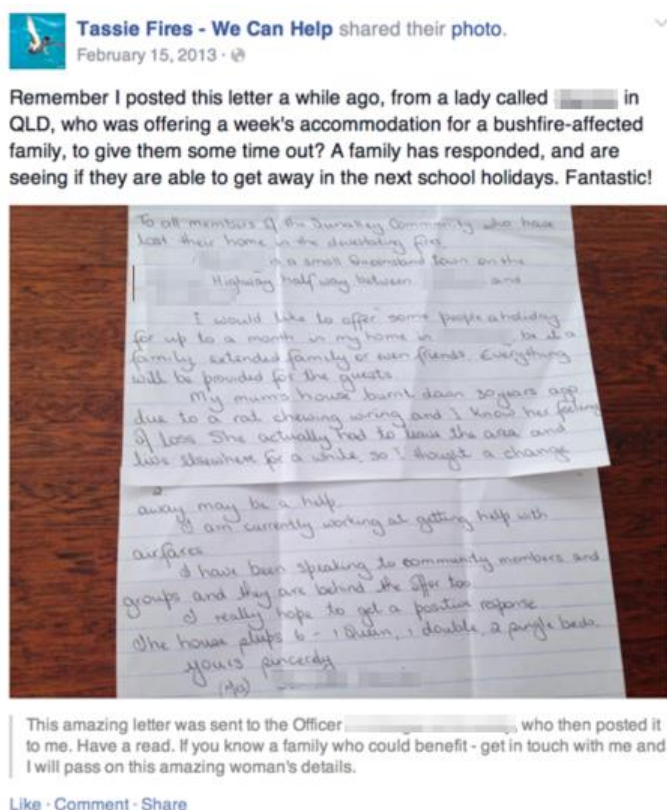 Tassie Fires - We Can Help shared their photo.
February 15, 2013 ·
Remember I posted this letter a while ago, from a lady called in
QLD, who was offering a week's accommodation for a bushfire-affected
family, to give them some time out? A family has responded, and are
seeing if they are able to get away in the next school holidays. Fantastic!
To all members of the Dunalley Community who have
lost their home in the devastating fires.
is a small Queensland town on the
Highway half way between and
I would like to offer some people a holiday
for up to a month in my home in be it a
family, extended family or even friends. Everything
will be provided for the guests.
My mum's house burnt down 30 years ago
due to a rat chewing wiring and I know her feeling
of Loss She actually had to leave the area and
live elsewhere for a while, so I thought a change
2
away may be a help.
I am currently working at getting help with
airfares
I have been speaking to community members and
groups and they are behind the offer too.
I really hope to get a positive response
The house sleeps 6 - 1 Queen, 1 double, 2 single beds.
yours sincerely
(Mrs)
This amazing letter was sent to the Officer , who then posted it
to me. Have a read. If you know a family who could benefit - get in touch with me and
I will pass on this amazing woman's details.
Like · Comment · Share